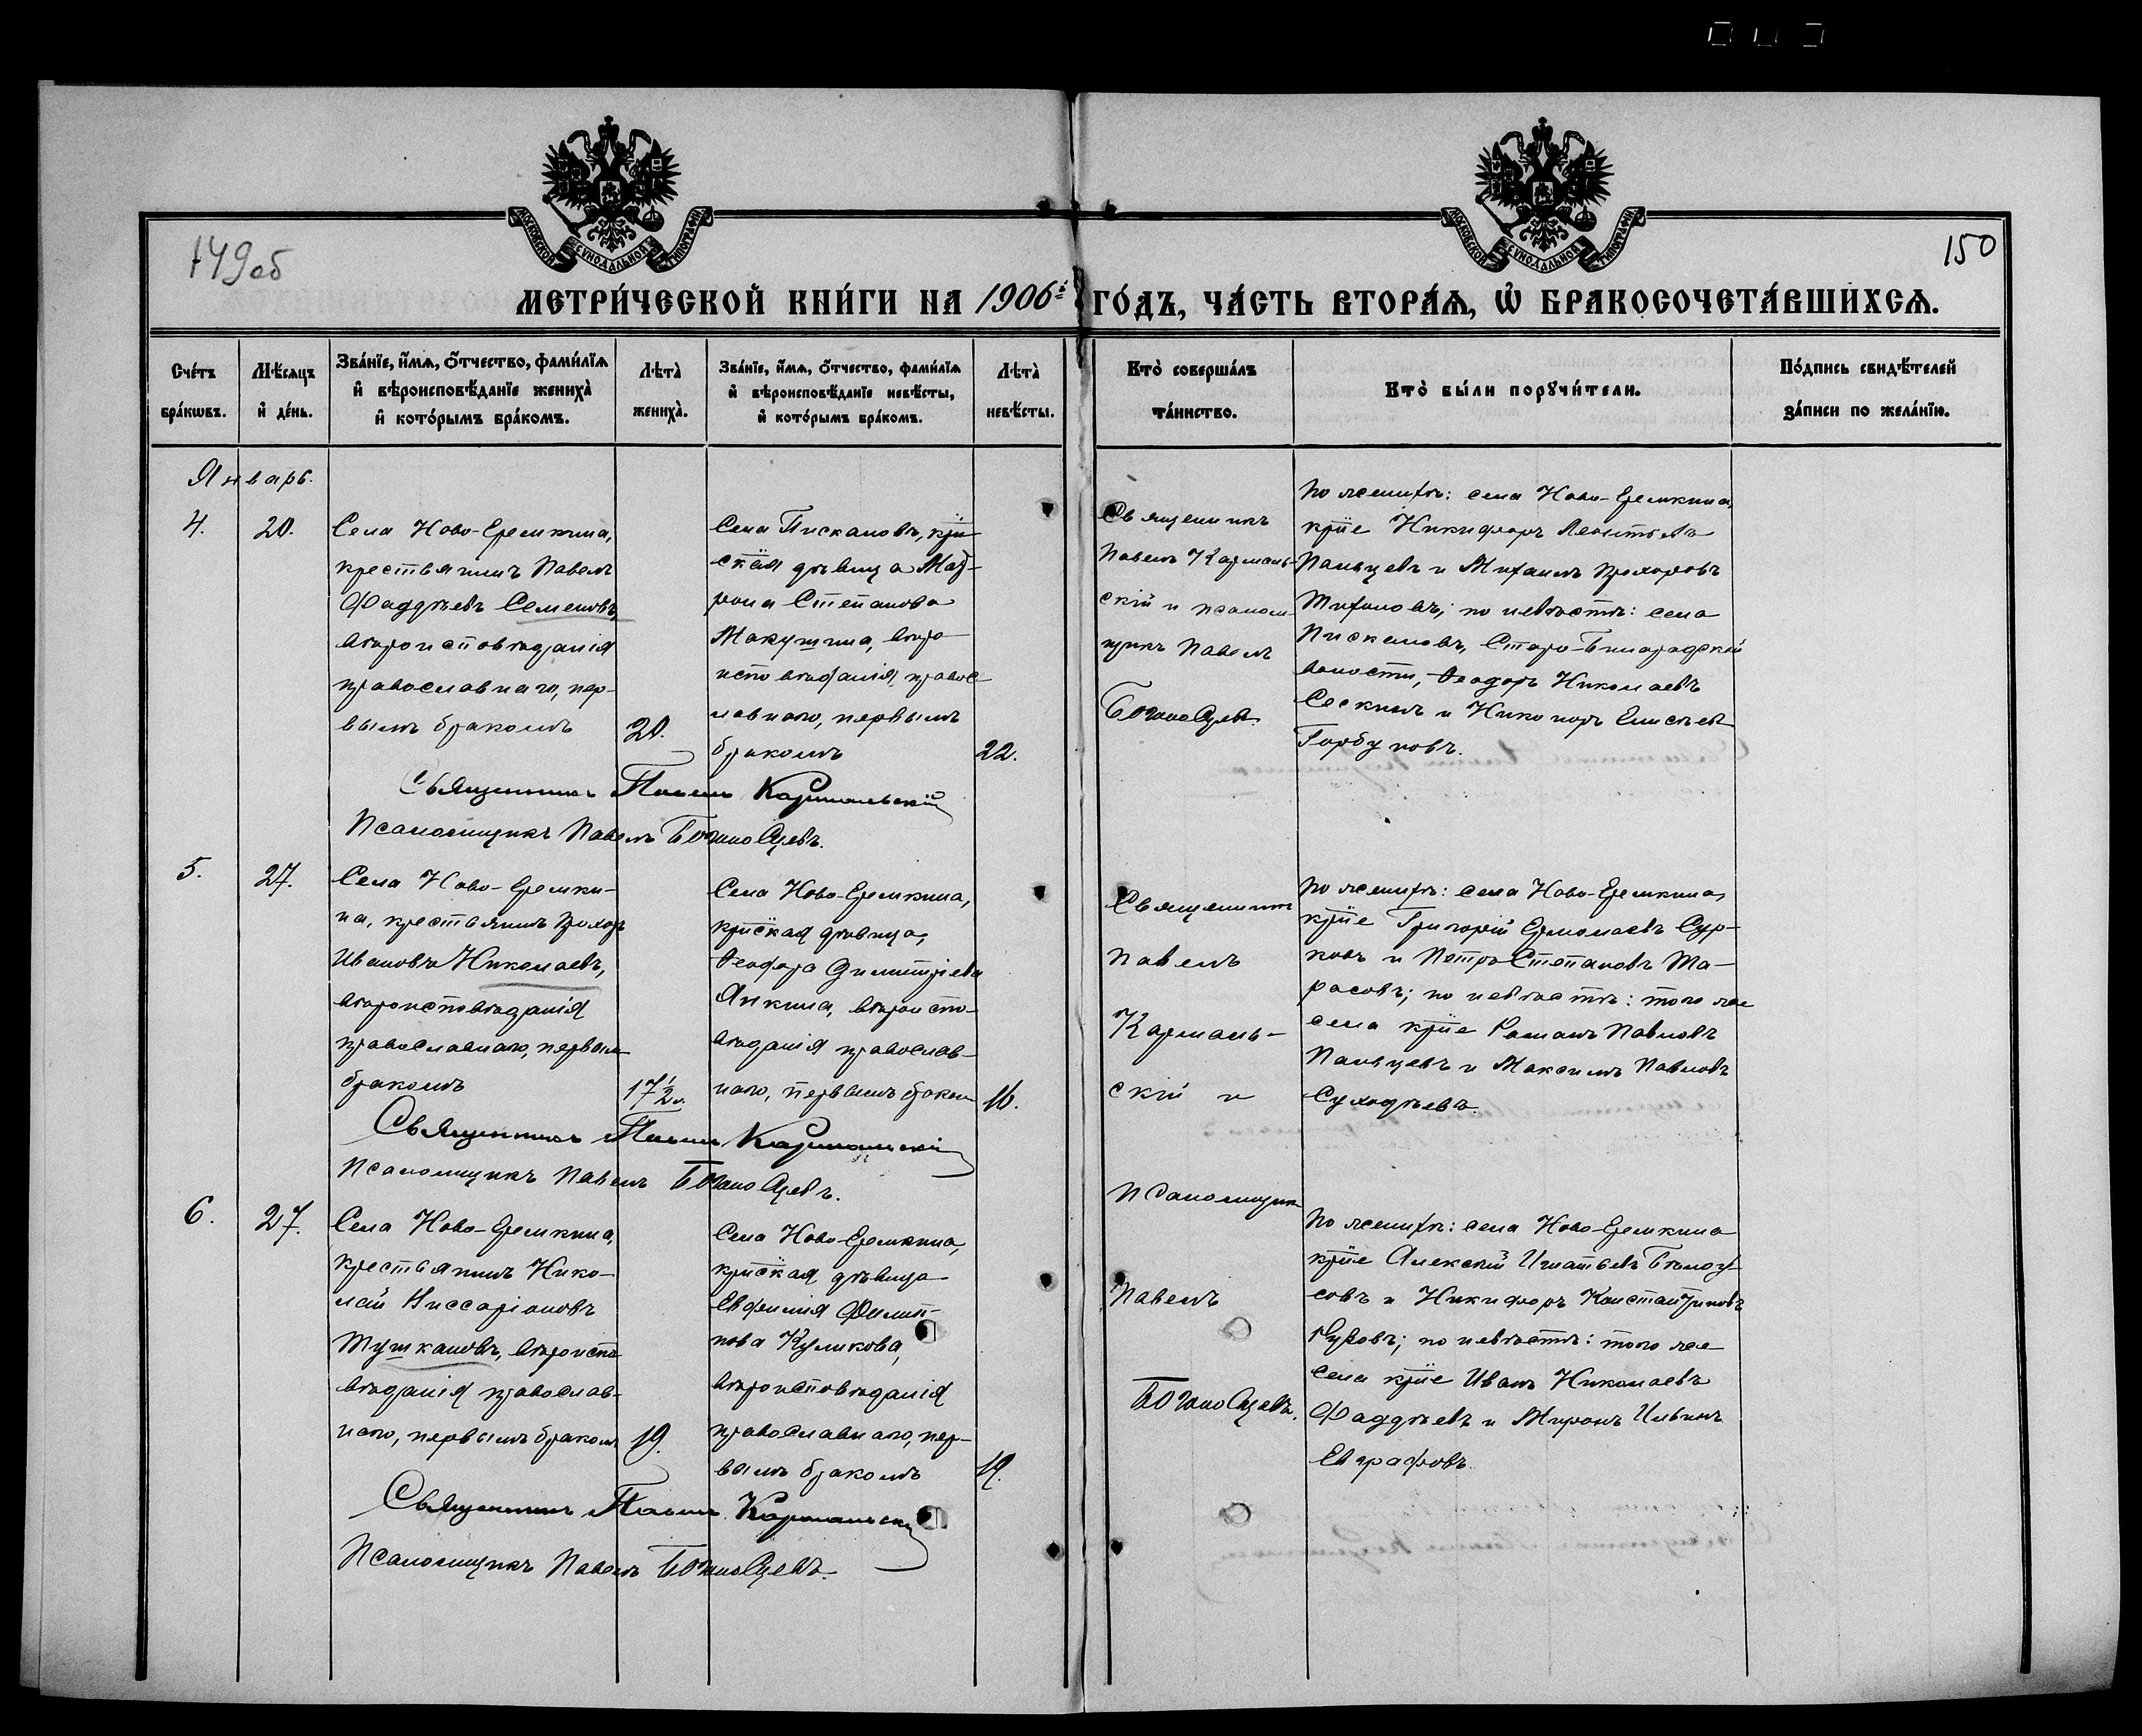 149об
150
МОСКОВСКОЙ СѴНОДАЛЬНОЙ ТИПОГРАФІИ
МОСКОВСКОЙ СѴНОДАЛЬНОЙ ТИПОГРАФІИ
МЕТРИ́ЧЕСКОЙ КНИ́ГИ НА 1906й ГО́ДЪ, ЧА́СТЬ ВТОРА́Ѧ, Ѡ҆ БРАКОСОЧЕТА́ВШИХСѦ.
Сче́тъ бра́кѡвъ.
Мѣ́сяцъ и҆ де́нь.
Зва́нїе, и҆́мѧ, ѻ҆́тчество, фами́лїѧ
и҆ вѣроисповѣ́данїе жениха̀
и҆ кото́рымъ бра́комъ.
Лѣта̀ жениха̀.
Зва́нїе, и҆́мѧ, ѻ҆́тчество, фами́лїѧ
и҆ вѣроисповѣ́данїе невѣ́сты,
и҆ кото́рымъ бра́комъ.
Лѣта̀ невѣ́сты.
Кто̀ соверша́лъ та́инство.
Кто̀ бы́ли порꙋчи́тели.
По́дпись свидѣ́телей за́писи по жела́нїю.
Январь.
4.
20.
Села Ново-Еремкина,
крестьянинъ Павелъ
Фаддѣевъ Семеновъ,
вѣроисповѣданія
православнаго, пер-
вымъ бракомъ
20.
Села Пискаловъ, кри-
ская дѣвица Мат-
рона Степанова
Макушина, вѣро
исповѣданія, правос-
лавнаго, первымъ
бракомъ
22.
Священникъ
Павелъ Кармаль-
скій и псалом
щикъ Павелъ
Богоносцевъ.
По женихѣ: села Ново-Еремкина,
кр͞не Никифоръ Леонтьевъ
Пальцевъ и Михаилъ Прохоровъ
Тихоновъ; по невѣстѣ: села
Пискаловъ, Старо-Бинарадской
волости, Ѳеодоръ Николаевъ
Сескинъ и Никаноръ Елисѣевъ
Горбуновъ.
Священникъ Павелъ Кармальскій
Псаломщикъ Павелъ Богоносцевъ.
5.
27.
Села Ново-Еремки-
на, крестьянинъ Прохоръ
Ивановъ Николаевъ,
вѣроисповѣданія
православнаго, первым
бракомъ
17½.
Села Ново-Еремкина,
кр͞нская дѣвица,
Ѳеодора Димитріева
Аникина, вѣроиспо-
вѣданія православ-
наго, первымъ браком
16.
Священникъ
Павелъ
Кармаль-
скій и
псаломщик
Павелъ
Богоносцевъ.
По женихѣ: села Ново-Еремкина,
кр͞не Григорій Ермолаевъ Сур-
ковъ и Петръ Степановъ Та-
расовъ; по невѣстѣ: того же
села кр͞не Романъ Павловъ
Пальцевъ и Максимъ Павловъ
Суходѣевъ.
Священникъ Павелъ Кармальскій
Псаломщикъ Павелъ Богоносцевъ.
6.
27.
Села Ново-Еремкина,
крестьянинъ Нико-
лай Виссаріоновъ
Тушкановъ, вѣроиспо
вѣданія православ-
наго, первымъ браком
19.
Села Ново-Еремкина,
кр͞нская дѣвица
Евфимія Филип-
пова Куликова,
вѣроисповѣданія
православнаго, пер-
вымъ бракомъ
19.
По женихѣ: села Ново-Еремкина
кр͞не Алексѣй Игнатьевъ Бѣлоу-
совъ и Никифоръ Константиновъ
по невѣстѣ: того же
села кр͞не Иванъ Николаевъ
Фаддѣевъ и Миронъ Ильинъ
Евграфовъ.
Священникъ Павелъ Кармальскій
Псаломщикъ Павелъ Богоносцевъ.